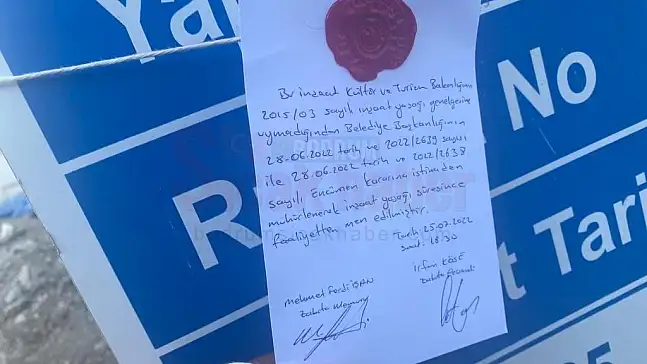 Ya
No
R
t Tari
Bu inşaat Kültür ve Turizm Bakanlığının
2015/03 sayılı inşaat yasağı genelgesine
uymadığından Belediye Başkanlığının
28.06.2022 tarih ve 2022/2639 sayılı
ile 28.06.2022 tarih ve 2022/2638
sayılı Encümen kararına istinaden
mühürlenerek inşaat yasağı süresince
faaliyetten men edilmiştir.
Tarih: 25.07.2022
Saat: 18.30
Mehmet Ferdi
Zabıta Memuru
İrfan KÖSE
Zabıta